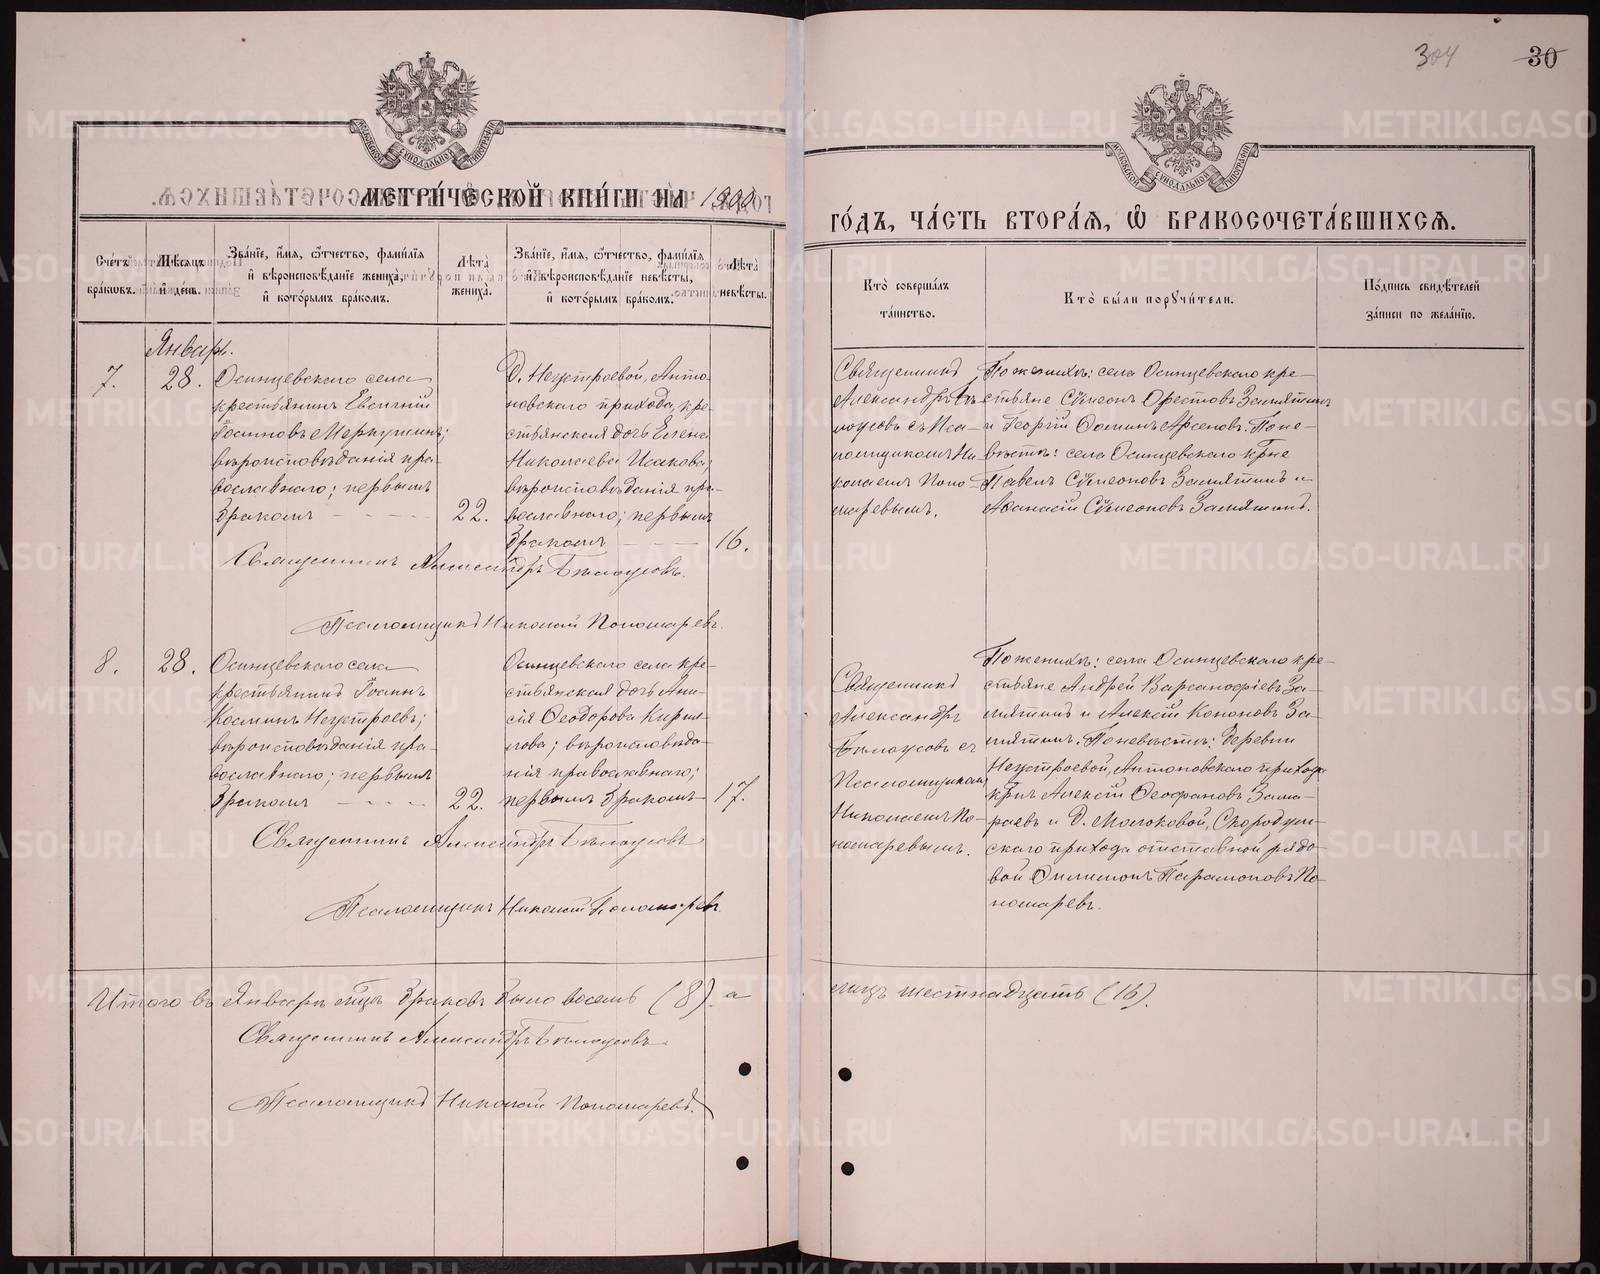 304 30
МЕТРИ́ЧЕСКОЙ КНИ́ГИ НА 1900
ГО́ДЪ, ЧА́СТЬ ВТОРА́Я, Ѿ БРАКОСОЧЕТА́ВШИХСЯ.
Сче́тъ бра́ковъ.
Мѣ́сяцъ и де́нь.
Зва́нїе, и́мя, ѻ́тчество, фами́лїя и҆ вѣроисповѣ́данїе жениха̀, и҆ кото́рымъ бра́комъ.
Лѣ́та жениха̀.
Зва́нїе, и́мя, ѻ́тчество, фами́лїя и҆ вѣроисповѣ́данїе невѣ́сты, и҆ кото́рымъ бра́комъ.
Лѣ́та невѣ́сты.
Кто̀ соверша́лъ та́инство.
Кто̀ бы́ли порꙋчи́тели.
По́дпись свидѣ́телей за́писи по жела́нїю.
Январь.
7.
28.
Осинцевскаго села
крестьянинъ Евгеній
Іоанновъ Меркушинъ;
вѣроисповѣданія пра-
вославнаго; первымъ
бракомъ
22.
Д. Неустроевой, Анто-
новскаго прихода, кре-
стьянская дочь Елена
Николаева Исакова;
вѣроисповѣданія пра-
вославнаго; первымъ
бракомъ
16.
Священникъ
Александръ Бѣ-
лоусовъ съ Пса-
ломщикомъ Ни-
колаемъ Поно-
маревымъ.
По женихѣ: села Осинцевскаго кре-
стьяне Сѵмеонъ Орестовъ Замятинъ
и Георгій Ѳоминъ Арсеновъ. По не-
вѣстѣ: села Осинцевскаго кр-не
Павелъ Сѵмеоновъ Замятинъ и
Аѳанасій Сѵмеоновъ Замятинъ.
Священникъ Александръ Бѣлоусовъ.
Псаломщикъ Николай Пономаревъ.
8.
28.
Осинцевскаго села
крестьянинъ Іоаннъ
Косминъ Неустроевъ;
вѣроисповѣданія пра-
вославнаго; первымъ
бракомъ
22.
Осинцевскаго села кре-
стьянская дочь Ани-
сія Ѳеодорова Кирил-
лова; вѣроисповѣда-
нія православнаго;
первымъ бракомъ
17.
Священникъ
Александръ
Бѣлоусовъ съ
Псаломщикомъ
Николаемъ По-
номаревымъ.
По женихѣ: села Осинцевскаго кре-
стьяне Андрей Варсанофіевъ За-
мятинъ и Алексій Кононовъ За-
мятинъ. По невѣстѣ: деревни
Неустроевой, Антоновскаго прихода
кр-нъ Алексій Ѳеофановъ Зама-
раевъ и Д. Молоковой, Скородум-
скаго прихода отставной рядо-
вой Филимонъ Парамоновъ По-
номаревъ.
Священникъ Александръ Бѣлоусовъ
Псаломщикъ Николай Пономаревъ.
Итого въ Январѣ м-цѣ браковъ было восемь (8). а лицъ шестнадцать (16).
Священникъ Александръ Бѣлоусовъ
Псаломщикъ Николай Пономаревъ.